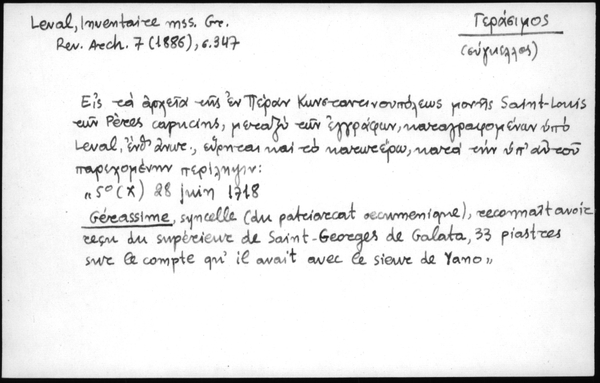 Leval, Inventaire mss. Gr.
Rev. Arch. 7 (1886), σ. 347
Γεράσιμος
(σύγκελλος)
Εἰς τὰ ἀρχεῖα τῆς ἐν Πέραν Κωνσταντινουπόλεως μονῆς Saint-Louis
τῶν Pères capucins, μεταξὺ τῶν ἐγγράφων, καταγραφομένων ὑπὸ
Leval, ἔνθ' ἀνωτ., εὕρηται καὶ τὸ κατωτέρω, κατὰ τὴν ὑπ' αὐτοῦ
παρεχομένην περίληψιν:
„5º (X) 28 juin 1718
Gérassime, syncelle (du patriarcat œcuménique), reconnaît avoir
reçu du supérieur de Saint-Georges de Galata, 33 piastres
sur le compte qu'il avait avec le sieur de Yano„